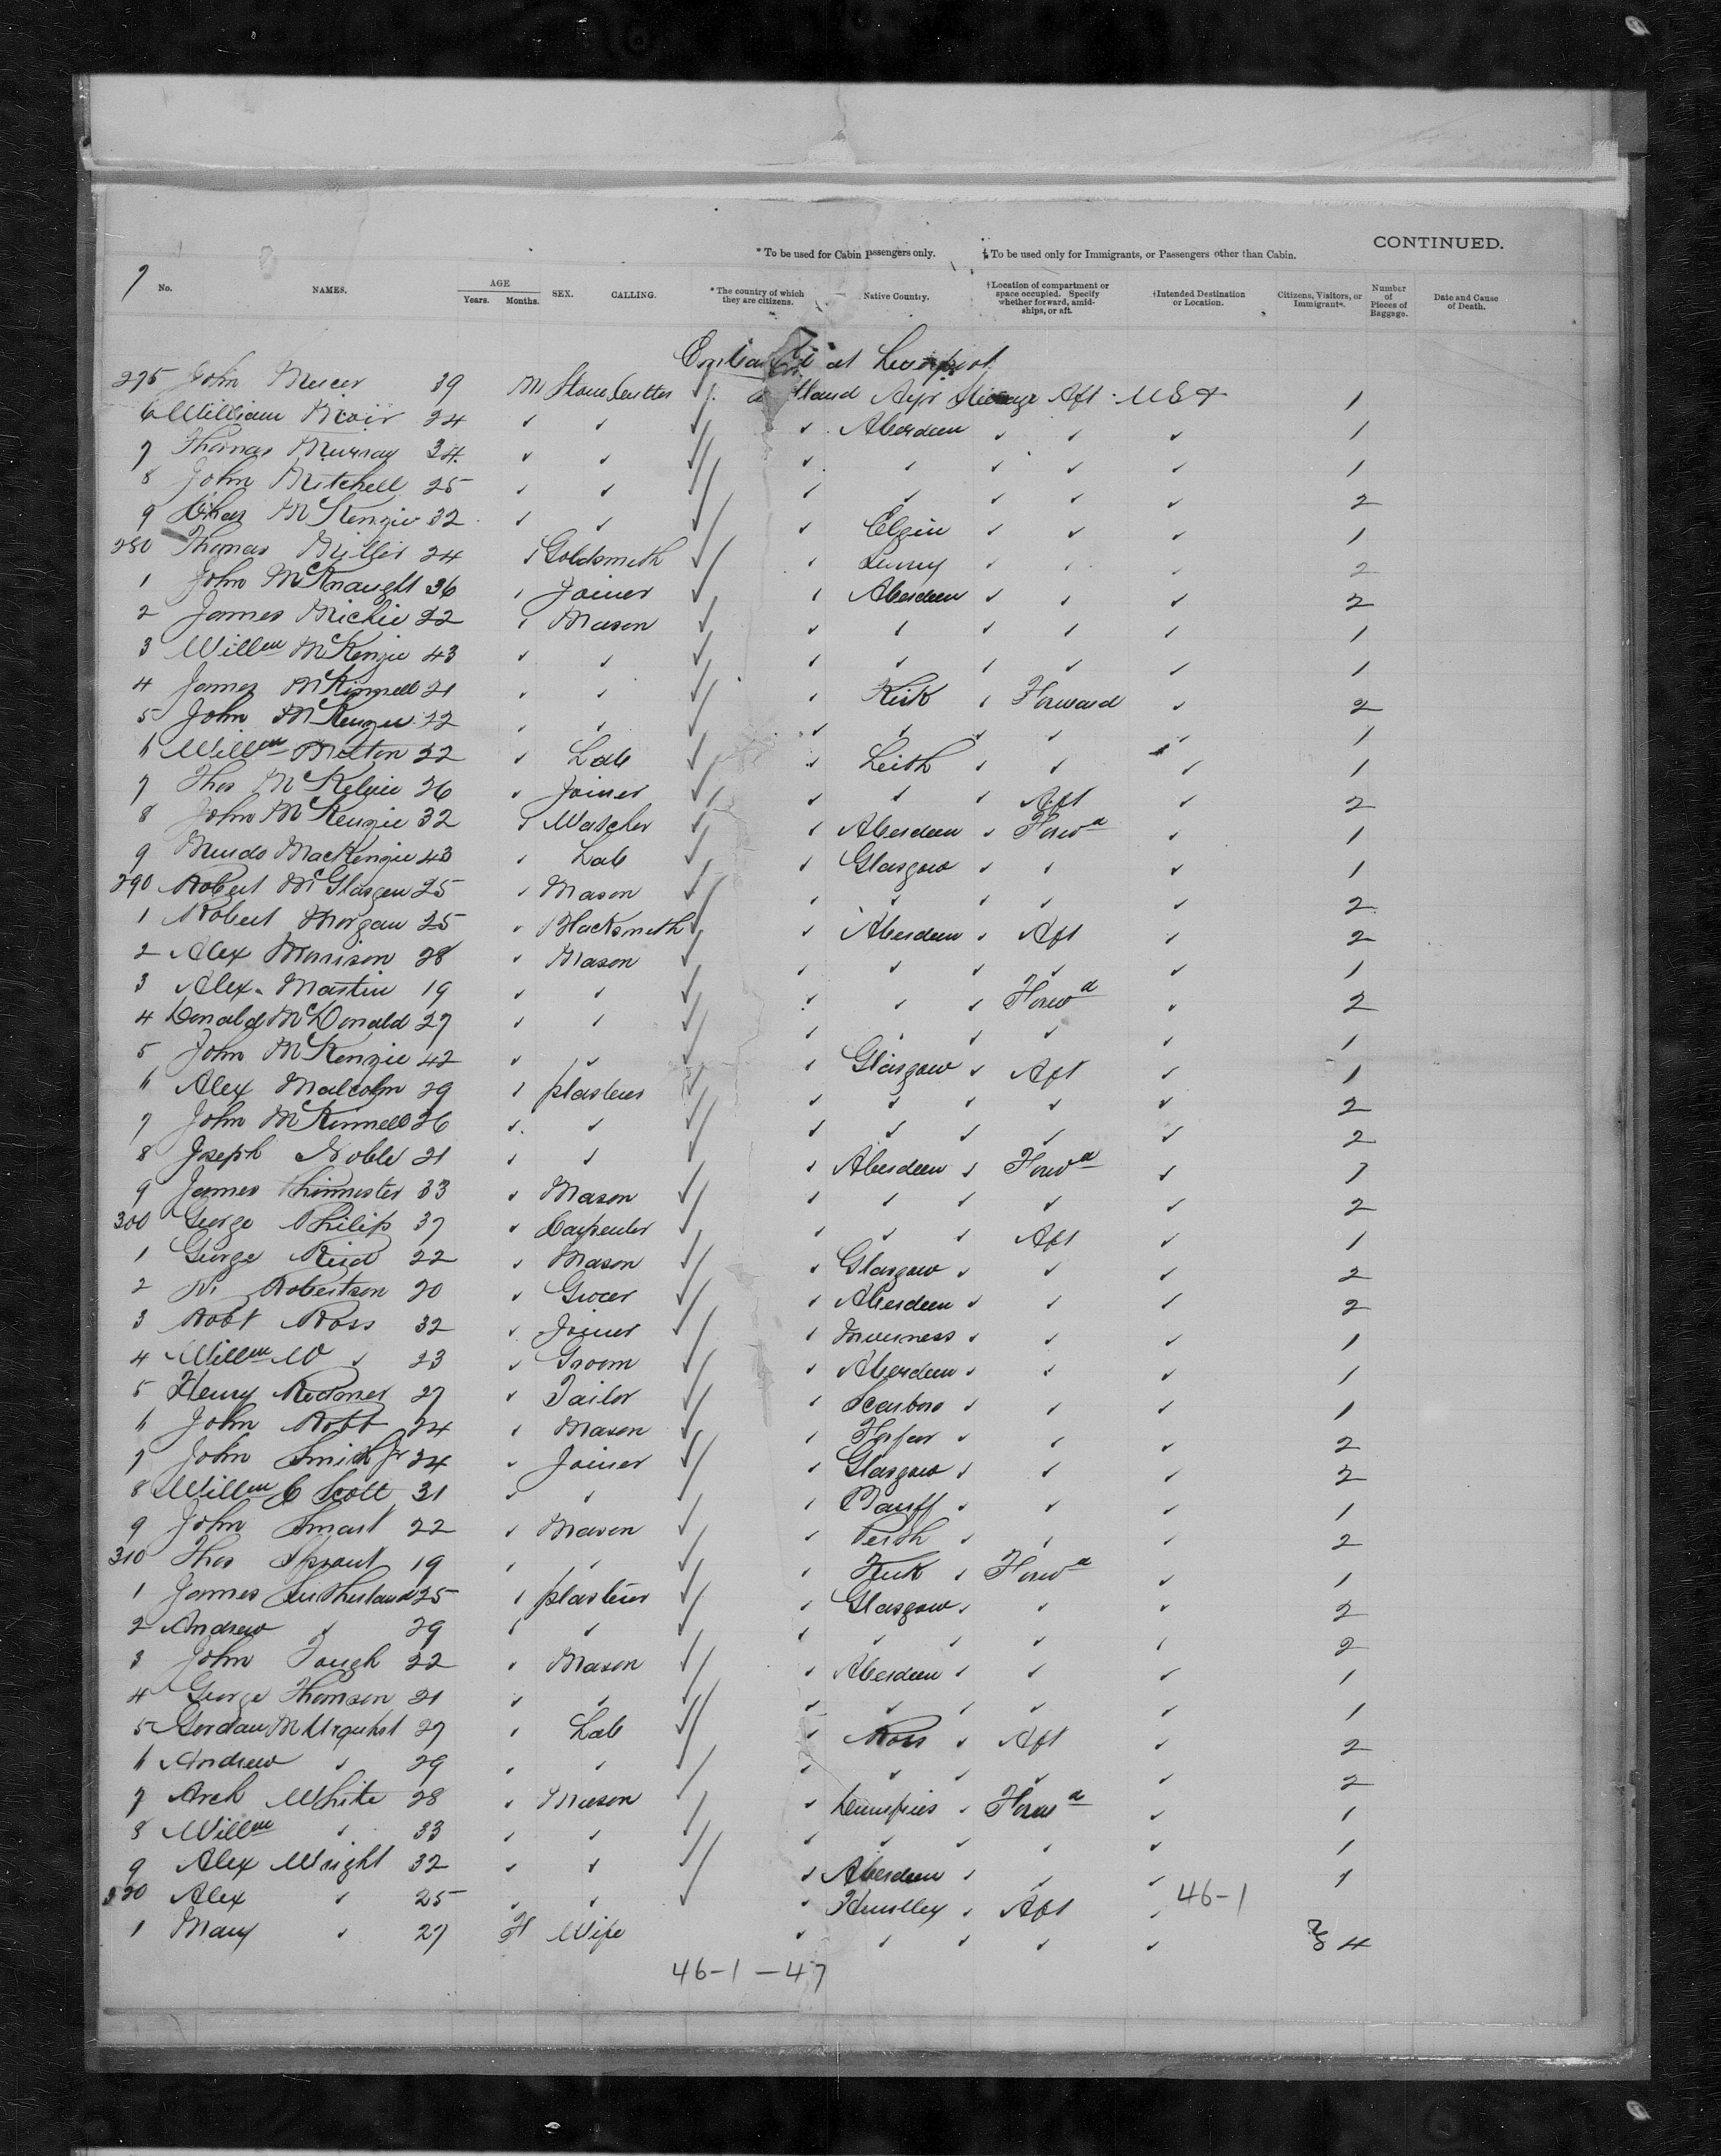 CONTINUED.
* To be used for Cabin passengers only. ‡ To be used only for Immigrants, or Passengers other than Cabin.
7
No. NAMES. AGE Years. Months. SEX. CALLING. * The country of which they are citizens. Native Country. †Location of compartment or space occupied. Specify whether forward, amidships, or aft. †Intended Destination or Location. Citizens, Visitors, or Immigrants. Number of Pieces of Baggage. Date and Cause of Death.
Embarked at Liverpool
275 John Mercer 39 M Stonecutter ✓ Ayr Steerage Aft USA 1
6 William Moir 24 ✓ ✓ ✓ ✓ Aberdeen ✓ ✓ ✓ 1
7 Thomas Murray 34 ✓ ✓ ✓ ✓ ✓ ✓ ✓ ✓ 1
8 John Mitchell 25 ✓ ✓ ✓ ✓ ✓ ✓ ✓ ✓ 2
9 Chas McKenzie 32 ✓ ✓ ✓ ✓ Elgin ✓ ✓ ✓ 1
280 Thomas Miller 24 ✓ Goldsmith ✓ ✓ ✓ ✓ ✓ 2
1 John McKnaught 36 ✓ Joiner ✓ ✓ Aberdeen ✓ ✓ ✓ 2
2 James Michie 22 ✓ Mason ✓ ✓ ✓ ✓ ✓ ✓ 1
3 Willm McKenzie 43 ✓ ✓ ✓ ✓ ✓ ✓ ✓ ✓ 1
4 James McKinnell 21 ✓ ✓ ✓ ✓ Kirk ✓ Forward ✓ 2
5 John McKenzie 22 ✓ ✓ ✓ ✓ ✓ ✓ ✓ ✓ 1
6 Willm Mitton 22 ✓ Lab ✓ ✓ Leith ✓ ✓ ✓ 1
7 Thos McKelvie 26 ✓ Joiner ✓ ✓ ✓ ✓ Aft ✓ 2
8 John McKenzie 32 ✓ ✓ ✓ Aberdeen ✓ Forwd ✓ 1
9 Murdo MacKenzie 43 ✓ Lab ✓ ✓ Glasgow ✓ ✓ ✓ 1
290 Robert 25 ✓ Mason ✓ ✓ ✓ ✓ ✓ ✓ 2
1 Robert Morgan 25 ✓ Blacksmith ✓ ✓ Aberdeen ✓ Aft ✓ 2
2 Alex Morrison 28 ✓ Mason ✓ ✓ ✓ ✓ ✓ ✓ 1
3 Alex. Martin 19 ✓ ✓ ✓ ✓ ✓ ✓ Forwd ✓ 2
4 Donald McDonald 27 ✓ ✓ ✓ ✓ ✓ ✓ ✓ ✓ 1
5 John McKenzie 42 ✓ ✓ ✓ ✓ Glasgow ✓ Aft ✓ 1
6 Alex Malcolm 29 ✓ plasterer ✓ ✓ ✓ ✓ ✓ ✓ 2
7 John McKinnell 26 ✓ ✓ ✓ ✓ ✓ ✓ ✓ ✓ 2
8 Joseph Noble 21 ✓ ✓ ✓ ✓ Aberdeen ✓ Forwd ✓ 1
9 James 33 ✓ Mason ✓ ✓ ✓ ✓ ✓ ✓ 2
300 George Philip 37 ✓ Carpenter ✓ ✓ ✓ ✓ Aft ✓ 1
1 George Reid 22 ✓ Mason ✓ ✓ Glasgow ✓ ✓ ✓ 2
2 Robertson 20 ✓ Grocer ✓ ✓ Aberdeen ✓ ✓ ✓ 2
3 Robt Ross 32 ✓ Joiner ✓ ✓ Inverness ✓ ✓ ✓ 1
4 Willm W ✓ 23 ✓ Groom ✓ ✓ Aberdeen ✓ ✓ ✓ 1
5 Henry 27 ✓ Tailor ✓ ✓ Scarboro ✓ ✓ ✓ 1
6 John Robb 24 ✓ Mason ✓ ✓ Forfar ✓ ✓ ✓ 2
7 John Smith Jr 24 ✓ Joiner ✓ ✓ Glasgow ✓ ✓ ✓ 2
8 Willm C Scott 31 ✓ ✓ ✓ ✓ Banff ✓ ✓ ✓ 1
9 John Smart 22 ✓ Mason ✓ ✓ Perth ✓ ✓ ✓ 2
310 Thos Sprout 19 ✓ ✓ ✓ ✓ Kirk ✓ Forwd ✓ 1
1 James Sutherland 25 ✓ plasterer ✓ ✓ Glasgow ✓ ✓ ✓ 2
2 Andrew ✓ 29 ✓ ✓ ✓ ✓ ✓ ✓ ✓ ✓ 2
3 John Tough 22 ✓ Mason ✓ ✓ Aberdeen ✓ ✓ ✓ 1
4 George Thomson 21 ✓ ✓ ✓ ✓ ✓ ✓ ✓ ✓ 1
5 Gordan M Urquhat 27 ✓ Lab ✓ ✓ Ross ✓ Aft ✓ 2
6 Andrew ✓ 29 ✓ ✓ ✓ ✓ ✓ ✓ ✓ ✓ 2
7 Arch White 28 ✓ Mason ✓ ✓ Dumfries ✓ Forwd ✓ 1
8 Willm ✓ 33 ✓ ✓ ✓ ✓ ✓ ✓ ✓ ✓ 1
9 Alex Wright 32 ✓ ✓ ✓ ✓ Aberdeen ✓ ✓ ✓ 1
320 Alex ✓ 25 ✓ ✓ ✓ ✓ Huntley ✓ Aft ✓ 46-1
1 Mary ✓ 27 F Wife ✓ ✓ ✓ ✓ ✓ 4
46-1-47